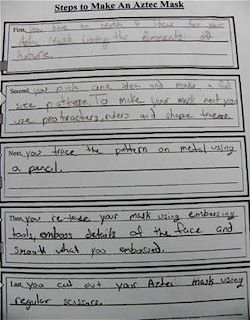 Steps to Make An Aztec Mask
First, you have to sketch 4 ideas for your
Aztec Mask using the elements of
nature.
Second, you pick one idea and make a full
size pattern. To make your mask next you
use protractors, rulers and shape tracers.
Next, you trace the pattern on metal using
a pencil.
Then, you re-trace your mask using embossing
tools, emboss details of the face and
smooth what you embossed.
Last, you cut out your Aztec mask using
regular scissors.